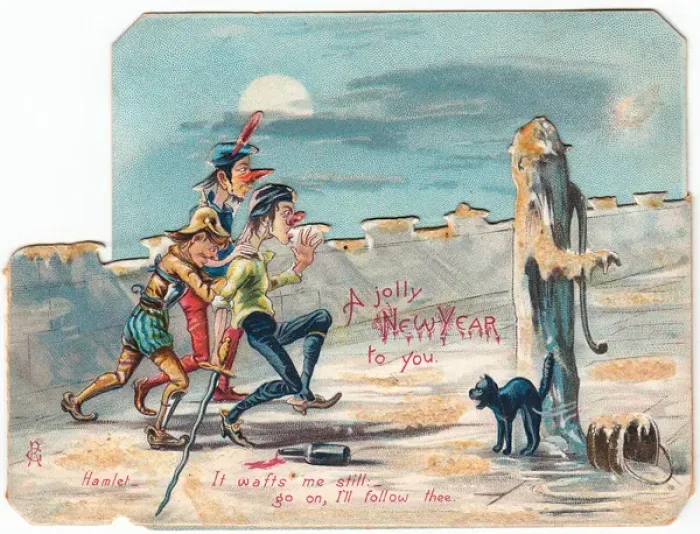 A jolly
NEW YEAR
to you.
Hamlet_
It wafts me still:_
go on, I'll follow thee.